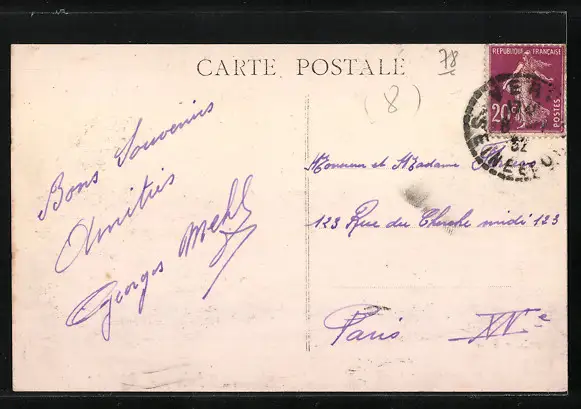 CARTE POSTALE
78
(8)
REPUBLIQUE FRANÇAISE
20
POSTES
32
Bons Souvenirs
Amitiés
Georges Mehl
Monsieur et Madame
123 Rue du Cherche midi 123
Paris XVe